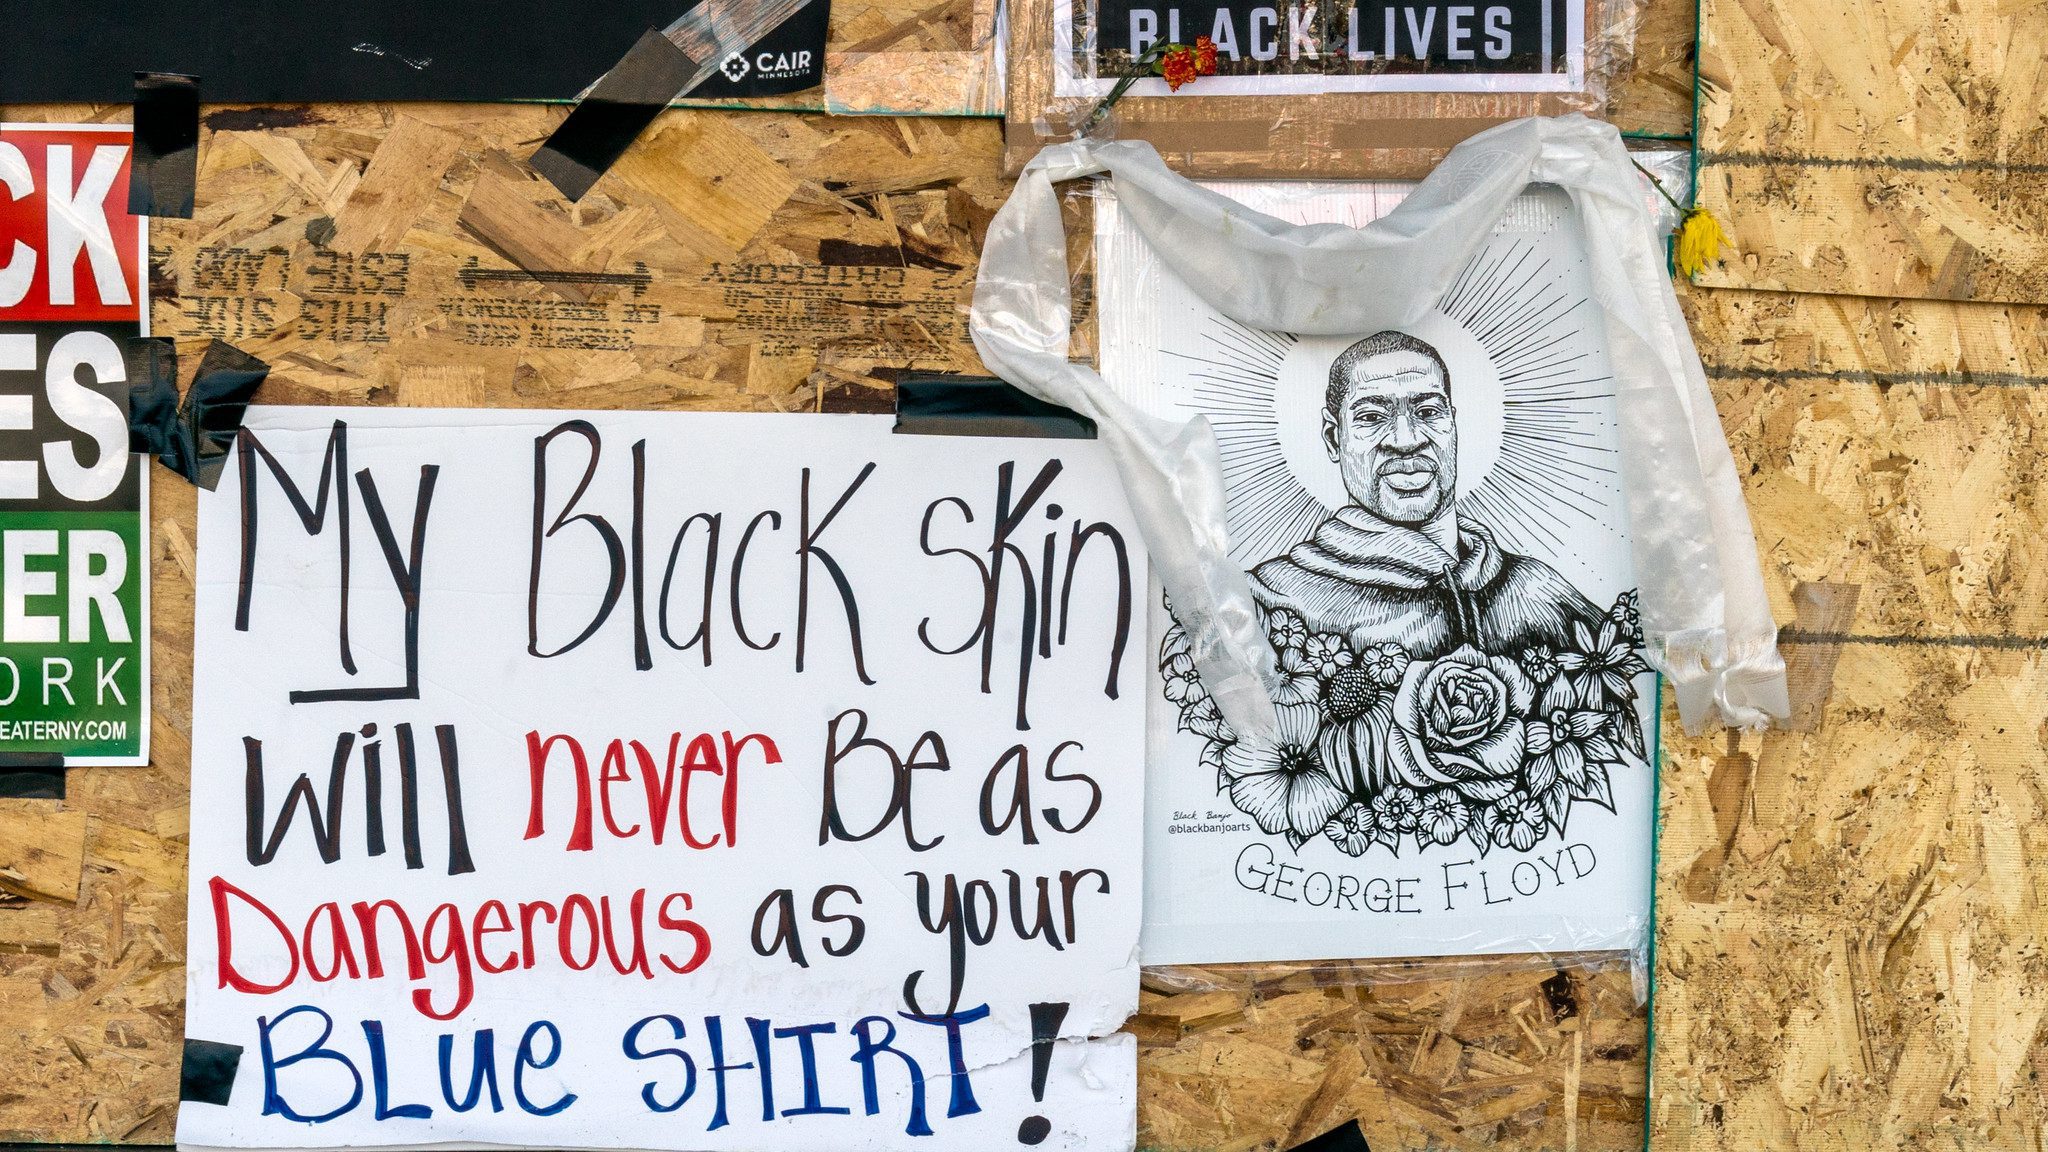 CAIR
MINNESOTA
BLACK LIVES
CK
ES
ER
ORK
EATERNY.COM
CATEGORY
My Black Skin
will never Be as
Dangerous as your
BLUE SHIRT!
Black Banjo
@blackbanjoarts
GEORGE FLOYD